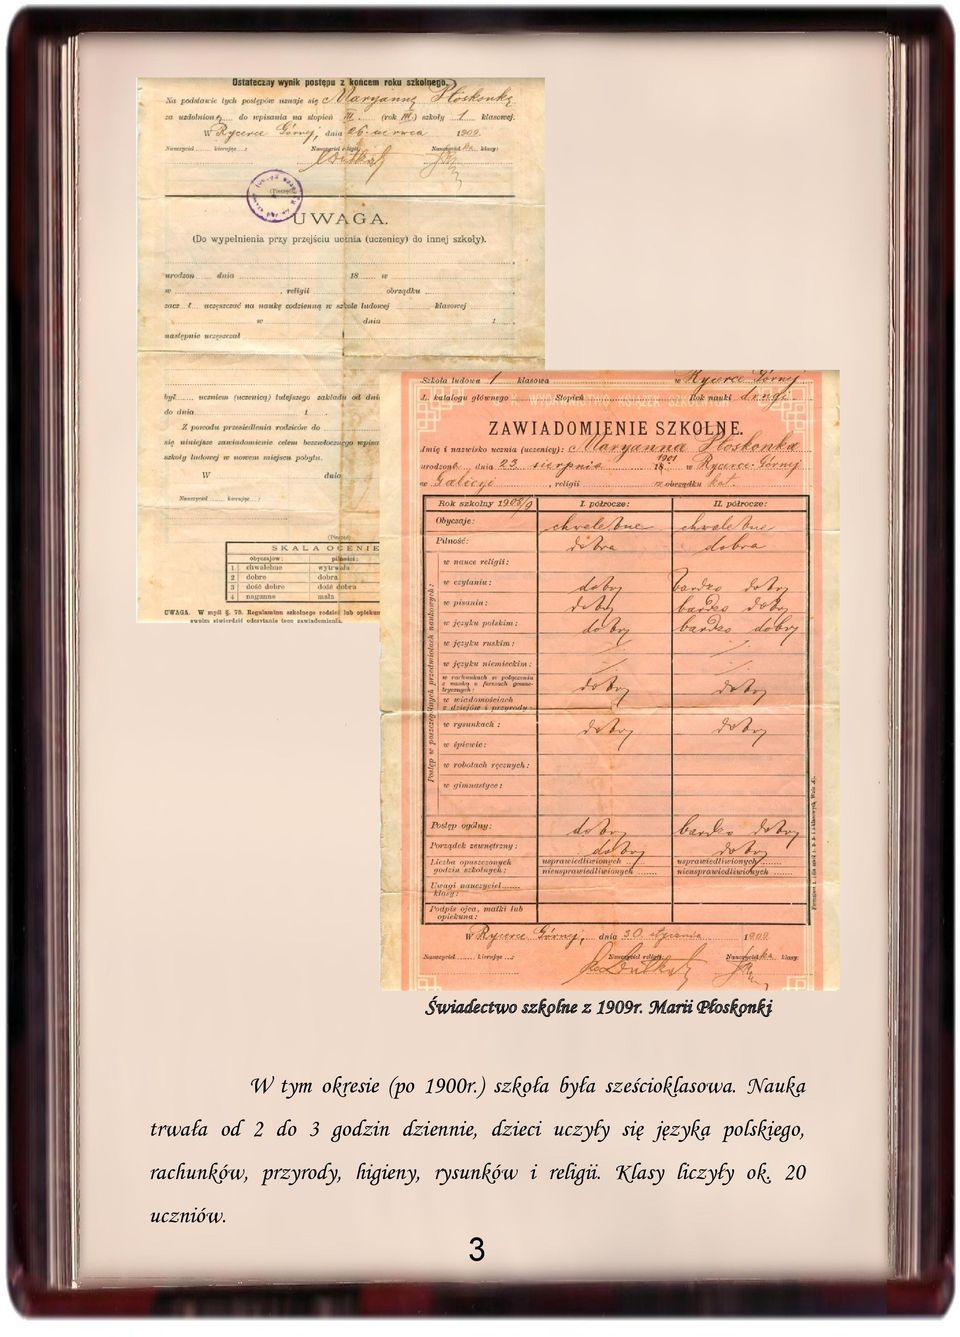 Ostateczny wynik postępu z końcem roku szkolnego.
Na podstawie tych postępów uznaje się Maryannę Płoskonkę
za uzdolnioną do wpisania na stopień III. (rok III.) szkoły 1 klasowej.
W Rycerce Górnej, dnia 26. czerwca 1909.
Nauczyciel kierując : Nauczyciel religii: Nauczycielka klasy:
(Pieczęć)
UWAGA.
(Do wypełnienia przy przejściu ucznia (uczenicy) do innej szkoły).
urodzon dnia 18 w
w , religii obrządku ,
zacz ł uczęszczać na naukę codzienną w szkole ludowej klasowej
w dnia 1 ,
następnie uczęszczał
był uczniem (uczenicą) tutejszego zakładu od dni
do dnia 1 .
Z powodu przesiedlenia rodziców do
się niniejsze zawiadomienie celem bezzwłocznego wpisa
szkoły ludowej w nowem miejscu pobytu.
W dnia
Nauczyciel kierując :
(Pieczęć)
SKALA OCENIE
obyczajów: pilności:
1 chwalebne wytrwała
2 dobre dobra
3 dość dobre dość dobra
4 naganne mała
UWAGA. W myśl §. 78. Regulaminu szkolnego rodzice lub opiekun
swoim stwierdzić odczytanie tego zawiadomienia.
Szkoła ludowa 1 klasowa w Rycerce Górnej
L. katalogu głównego Stopień Rok nauki drugi
ZAWIADOMIENIE SZKOLNE.
Imię i nazwisko ucznia (uczenicy): Maryanna Płoskonka
urodzona dnia 23 sierpnia 1901 18 w Rycerce Górnej
w Galicyi , religii rz. obrządku kat.
Rok szkolny 1908/9 I. półrocze: II. półrocze:
Obyczaje: chwalebne chwalebne
Pilność: dobra dobra
Postęp w poszczególnych przedmiotach naukowych:
w nauce religii:
w czytaniu: dobry bardzo dobry
w pisaniu: dobry bardzo dobry
w języku polskim: dobry bardzo dobry
w języku ruskim:
w języku niemieckim:
w rachunkach w połączeniu
z nauką o formach geome-
trycznych: dobry dobry
w wiadomościach
z dziejów i przyrody:
w rysunkach: dobry dobry
w śpiewie:
w robotach ręcznych:
w gimnastyce:
Postęp ogólny: dobry bardzo dobry
Porządek zewnętrzny: dobry dobry
Liczba opuszczonych usprawiedliwionych usprawiedliwionych
godzin szkolnych: nieusprawiedliwionych nieusprawiedliwionych
Uwagi nauczyciel
klasy:
Podpis ojca, matki lub
opiekuna:
W Rycerce Górnej, dnia 30. stycznia 1909.
Nauczyciel kierując : Nauczyciel religii: Nauczycielka klasy:
Świadectwo szkolne z 1909r. Marii Płoskonki
W tym okresie (po 1900r.) szkoła była sześcioklasowa. Nauka
trwała od 2 do 3 godzin dziennie, dzieci uczyły się języka polskiego,
rachunków, przyrody, higieny, rysunków i religii. Klasy liczyły ok. 20
uczniów.
3